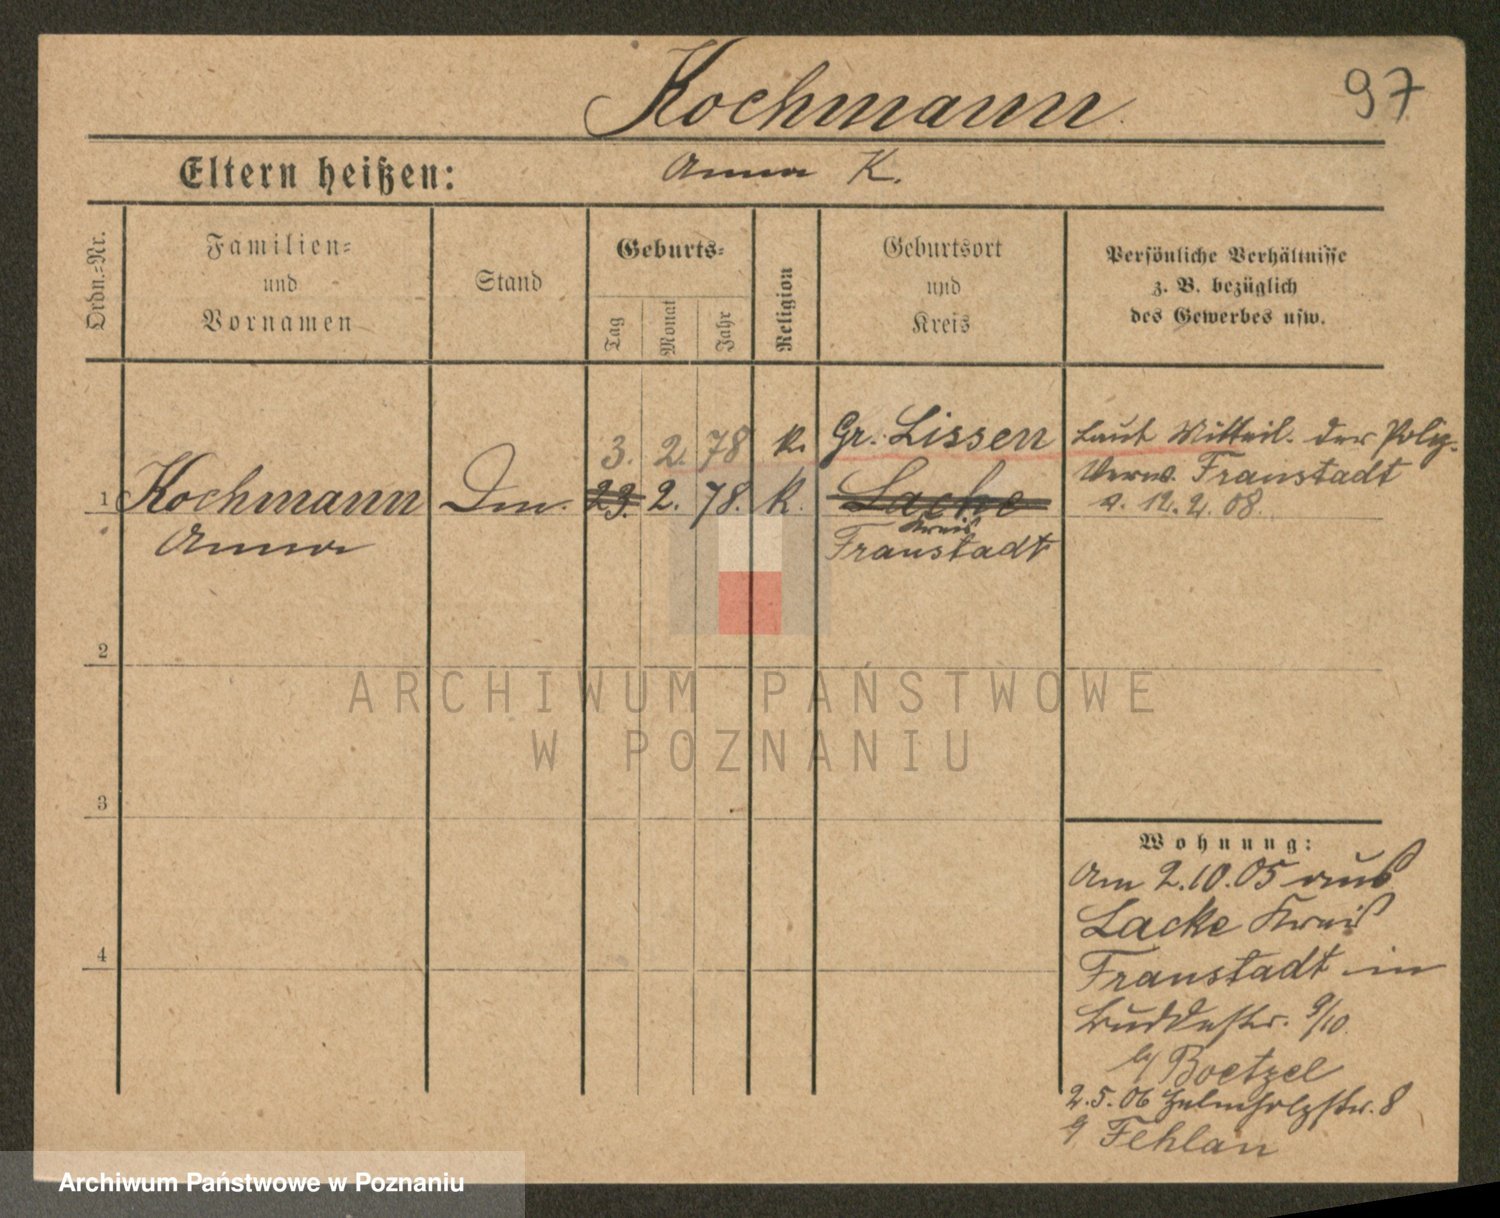 Kochmann
97
Eltern heißen:
Anna K.
Ordn.=Nr.
Familien=
und
Vornamen
Stand
Geburts=
Tag
Monat
Jahr
Religion
Geburtsort
und
Kreis
Persönliche Verhältnisse
z. B. bezüglich
des Gewerbes usw.
3. 2. 78 k. Gr. Lissen
Laut Mitteil. der Poliz.
Verw. Fraustadt
v. 12.2.08.
1 Kochmann
Anna
23. 2. 78. k. Lache
Kreis
Fraustadt
2
3
4
ARCHIWUM PAŃSTWOWE
W POZNANIU
Wohnung:
Am 2.10.05 aus
Lacke Kreis
Fraustadt in
Buddestr. 9/10.
b/ Boetzel
2.5.06 Helmholzstr. 8
b/ Fehlan
Archiwum Państwowe w Poznaniu